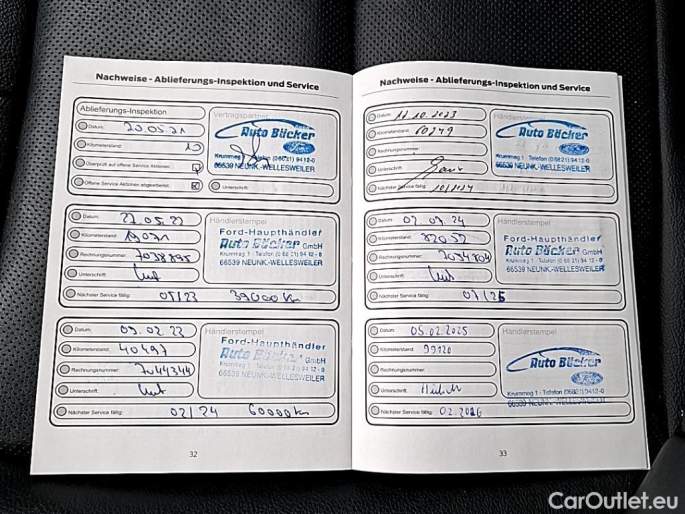 Nachweise - Ablieferungs-Inspektion und Service
Ablieferungs-Inspektion
Datum: 20.05.21
Kilometerstand: 10
Überprüft auf offene Service Aktionen:
Offene Service Aktionen abgearbeitet:
Vertragspartner
Auto Bücker
Krummeg 1 · Telefon (06821) 9412-0
66539 NEUNK.-WELLESWEILER
Unterschrift
Datum: 27.05.22
Kilometerstand: 19071
Rechnungsnummer: 7038895
Unterschrift:
Nächster Service fällig: 05/23 39000 Km
Händlerstempel
Ford-Haupthändler
Auto Bücker GmbH
Krummeg 1 · Telefon (0 68 21) 94 12 - 0
66539 NEUNK-WELLESWEILER
Datum: 09.02.23
Kilometerstand: 40497
Rechnungsnummer: 7044344
Unterschrift:
Nächster Service fällig: 02/24 60000 Km
Händlerstempel
Ford-Haupthändler
Auto Bücker GmbH
Krummeg 1 · Telefon (0 68 21) 94 12 - 0
66539 NEUNK-WELLESWEILER
32
Nachweise - Ablieferungs-Inspektion und Service
Datum: 17.10.2023
Kilometerstand: 60249
Rechnungsnummer:
Unterschrift:
Nächster Service fällig: 10/2024
Auto Bücker
Ford
Krummeg 1 · Telefon (06821) 9412-0
66539 NEUNK.-WELLESWEILER
Datum: 02.07.24
Kilometerstand: 82052
Rechnungsnummer: 7054804
Unterschrift:
Nächster Service fällig: 07/25
Händlerstempel
Ford-Haupthändler
Auto Bücker GmbH
Krummeg 1 · Telefon (0 68 21) 94 12 - 0
66539 NEUNK-WELLESWEILER
Datum: 05.02.2025
Kilometerstand: 99120
Rechnungsnummer:
Unterschrift:
Nächster Service fällig: 02.2026
Händlerstempel
Auto Bücker
Krummeg 1 · Telefon (06821) 9412-0
66539 NEUNK.-WELLESWEILER
33
CarOutlet.eu